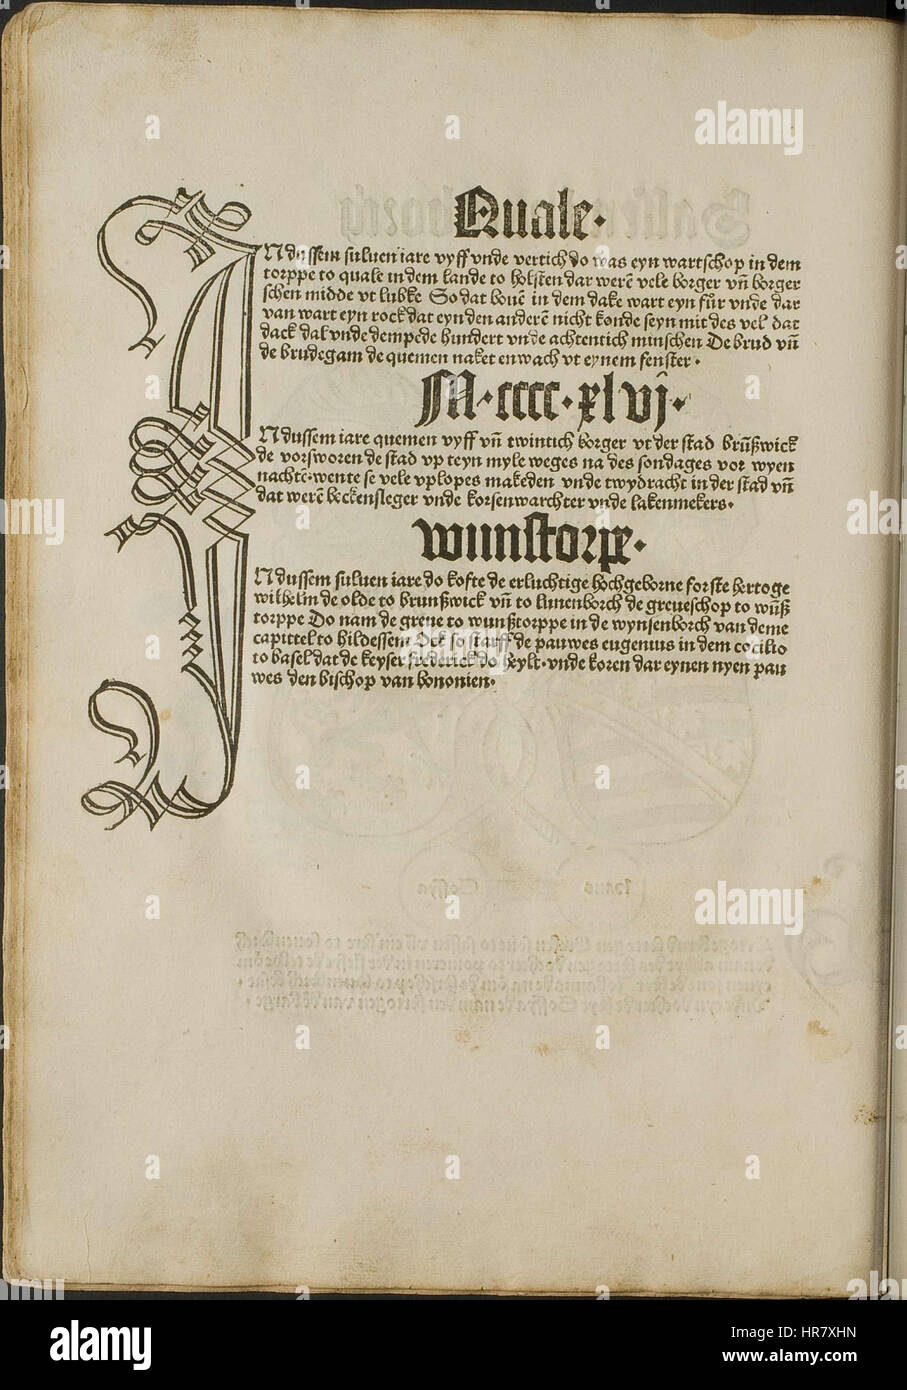 Quale·
N dussem suluen iare vyff vnde vertich do was eyn wartschop in dem
torppe to quale in dem lande to holsten dar werē vele borger vn̄ borger
schen midde vt lubke So dat bouē in dem dake wart eyn fűr vnde dar
van wart eyn rock dat eyn den anderē nicht konde seyn mit des vel dat
dack dal vnde dempede hundert vnde achtentich minschen De brud vn̄
de brudegam de quemen naket enwach vt eynem fenster·
M·cccc·xlvj·
N dussem iare quemen vyff vn̄ twintich borger vt der stad brűßwick
de vorsworen de stad vp teyn myle weges na des sondages vor wyen
nachtē·wente se vele vplopes makeden vnde twydracht in der stad vn̄
dat werē beckensleger vnde korsenwarchter vnde lakenmekers·
wunstorpe·
N dussem suluen iare do kofte de erluchtige hochgeborne forste hertoge
wilhelm de olde to brunßwick vn̄ to lunenborch de greueschop to wūß
torppe Do nam de greue to wunßtorppe in de wynsenborch van deme
capittel to hildessem Ock so starff de pauwes eugenius in dem cōcilio
to basel dat de keyser frederick do heylt·vnde koren dar eynen nyen pau
wes den bischop van bononien·
alamy
Image ID: HR7XHN
www.alamy.com